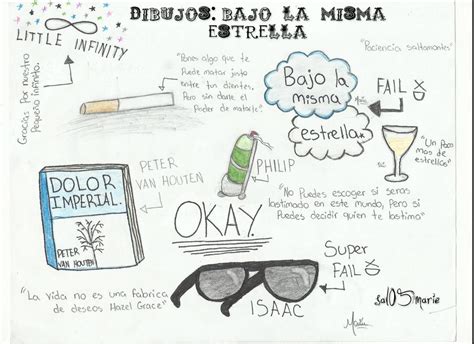 DIBUJOS: BAJO LA MISMA
ESTRELLA
LITTLE INFINITY
Gracias Por nuestro
Pequeño infinito.
"Pones algo que te
Puede matar justo
entre tus dientes,
Pero sin darle el
Poder de matarte".
Bajo
la
misma
estrella.
"Paciencia saltamontes"
FAIL
"Un Poco
mas de
estrellas"
PETER
VAN HOUTEN
DOLOR
IMPERIAL.
PETER
VAN HOUTEN
PHILIP
"No Puedes escoger si seras
lastimado en este mundo, Pero si
Puedes decidir quien te lastima"
OKAY.
Super
FAIL
"La vida no es una fabrica
de deseos Hazel Grace"
ISAAC
salOSmarie